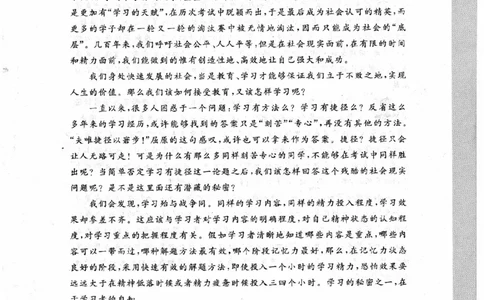 是更加有“学习的天赋”,在历次考试中脱颖而出,于是最后成为社会认可的精英,而
更多的学子却在一轮又一轮的淘汰赛中被无情地淘汰,因而只能成为社会的“底
层”。几百年来,我们呼吁社会公平、人人平等,但是在社会现实面前,在有限的时间
和精力面前,我们能做到的惟有创造性地、高效地让自己强大和成功。
我们身处快速发展的社会,当是教育、学习才能够保证我们立于不败之地,实现
人生的价值。那么我们该如何接受教育,又该怎样学习呢?
一直以来,很多人困惑于一个问题:学习有方法么? 学习有捷径么? 反省这么
多年来的学习经历,或许能够找到的答案只是“刻苦”“专心”,再没有其他的方法。
“夫唯捷径以窘步!”屈原的这句感叹,或许也可以拿来作为答案。捷径? 捷径只会
让人无路可走! 可是为什么有那么多同样刻苦专心的同学,不能够在考试中同样胜
出呢? 当简单否定学习有捷径这一论题之后,我们该怎样回答这个残酷的社会现实
问题呢? 是不是这里面还有潜藏的秘密?
我们会发现,学习殆与战争同。同样的学习内容,同样的精力投入程度,学习效
果却参差不齐。这应该与学习者对学习内容的明确程度,对自己精神状态的认知程
度,对学习重点的把握程度有关。假如学习者清晰地知道哪些内容是重点,哪些内
容可以一带而过,哪种解题方法最有效,哪个阶段记忆力最好,那么,在记忆力状态
良好的阶段,采用快速有效的解题方法,即使投入一个小时的学习精力,恐怕效果要
远远大于在精神低落时候或者精力疲惫时候投入三四个小时。学习的秘密之一,在
于学习者的自知。